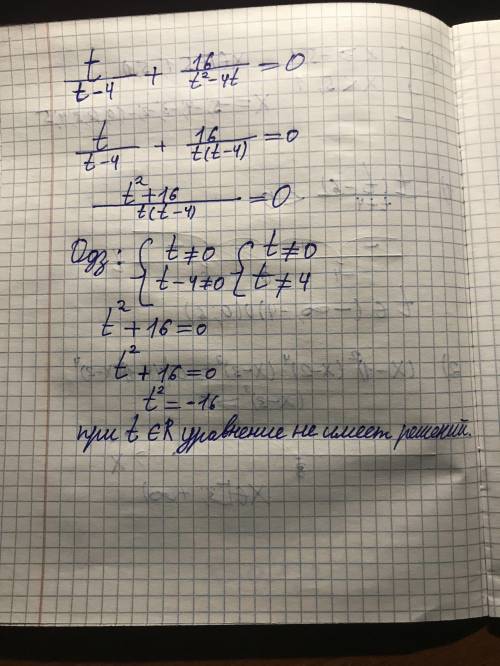 t/(t-4) + 16/(t²-4t) = 0
t/(t-4) + 16/(t(t-4)) = 0
(t²+16)/(t(t-4)) = 0
Одз: { t≠0 { t≠0
{ t-4≠0 { t≠4
t²+16=0
t²+16=0
t²=-16
при t∈R уравнение не имеет решений.